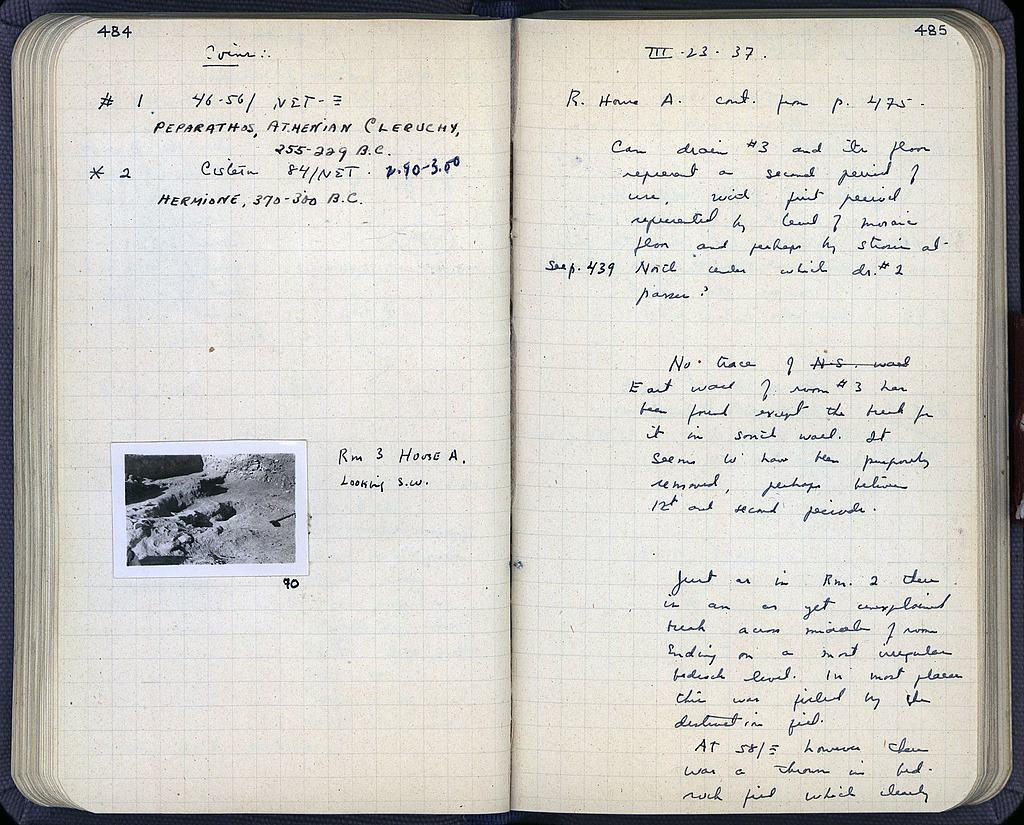 484
Coins:
# 1 46-56/ NET-Ξ
PEPARATHOS, ATHENIAN CLERUCHY,
255-229 B.C.
* 2 Cistern 84/NET. 2.90-3.00
HERMIONE, 370-300 B.C.
Rm 3 HOUSE A.
Looking S.W.
90
485
III-23-37.
R. House A. cont. from p. 475.
Can drain #3 and its floor
represent a second period of
use, with first period
represented by level of mosaic
floor and perhaps by stosis at
see p. 439 North under which dr. #2
passes?
No trace of N-S. wall
East wall of room #3 has
been found except the break for
it in south wall. It
seems to have been purposely
removed, perhaps between
1st and second periods.
Just as in Rm. 2 there
is an as yet unexplained
break across middle of room
Ending on a most irregular
bedrock level. In most places
this was filled by the
destruction fill.
At 58/Ξ however there
was a thrown in bed-
rock fill which clearly